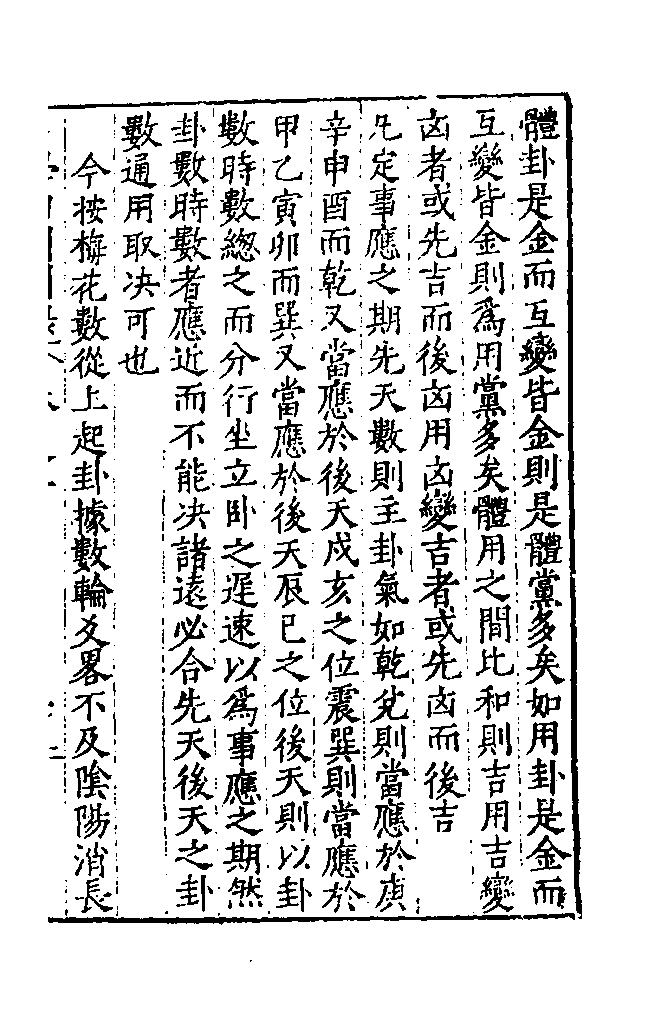 體卦是金而互變皆金則是體黨多矣如用卦是金而
互變皆金則爲用黨多矣體用之間比和則吉用吉變
凶者或先吉而後凶用凶變吉者或先凶而後吉
凡定事應之期先天數則主卦氣如乾兌則當應於庚
辛申酉而乾又當應於後天戌亥之位震巽則當應於
甲乙寅卯而巽又當應於後天辰巳之位後天則以卦
數時數緫之而分行坐立卧之遲速以爲事應之期然
卦數時數者應近而不能决諸遠必合先天後天之卦
數通用取决可也
今按梅花數從上起卦據數輪爻畧不及陰陽消長